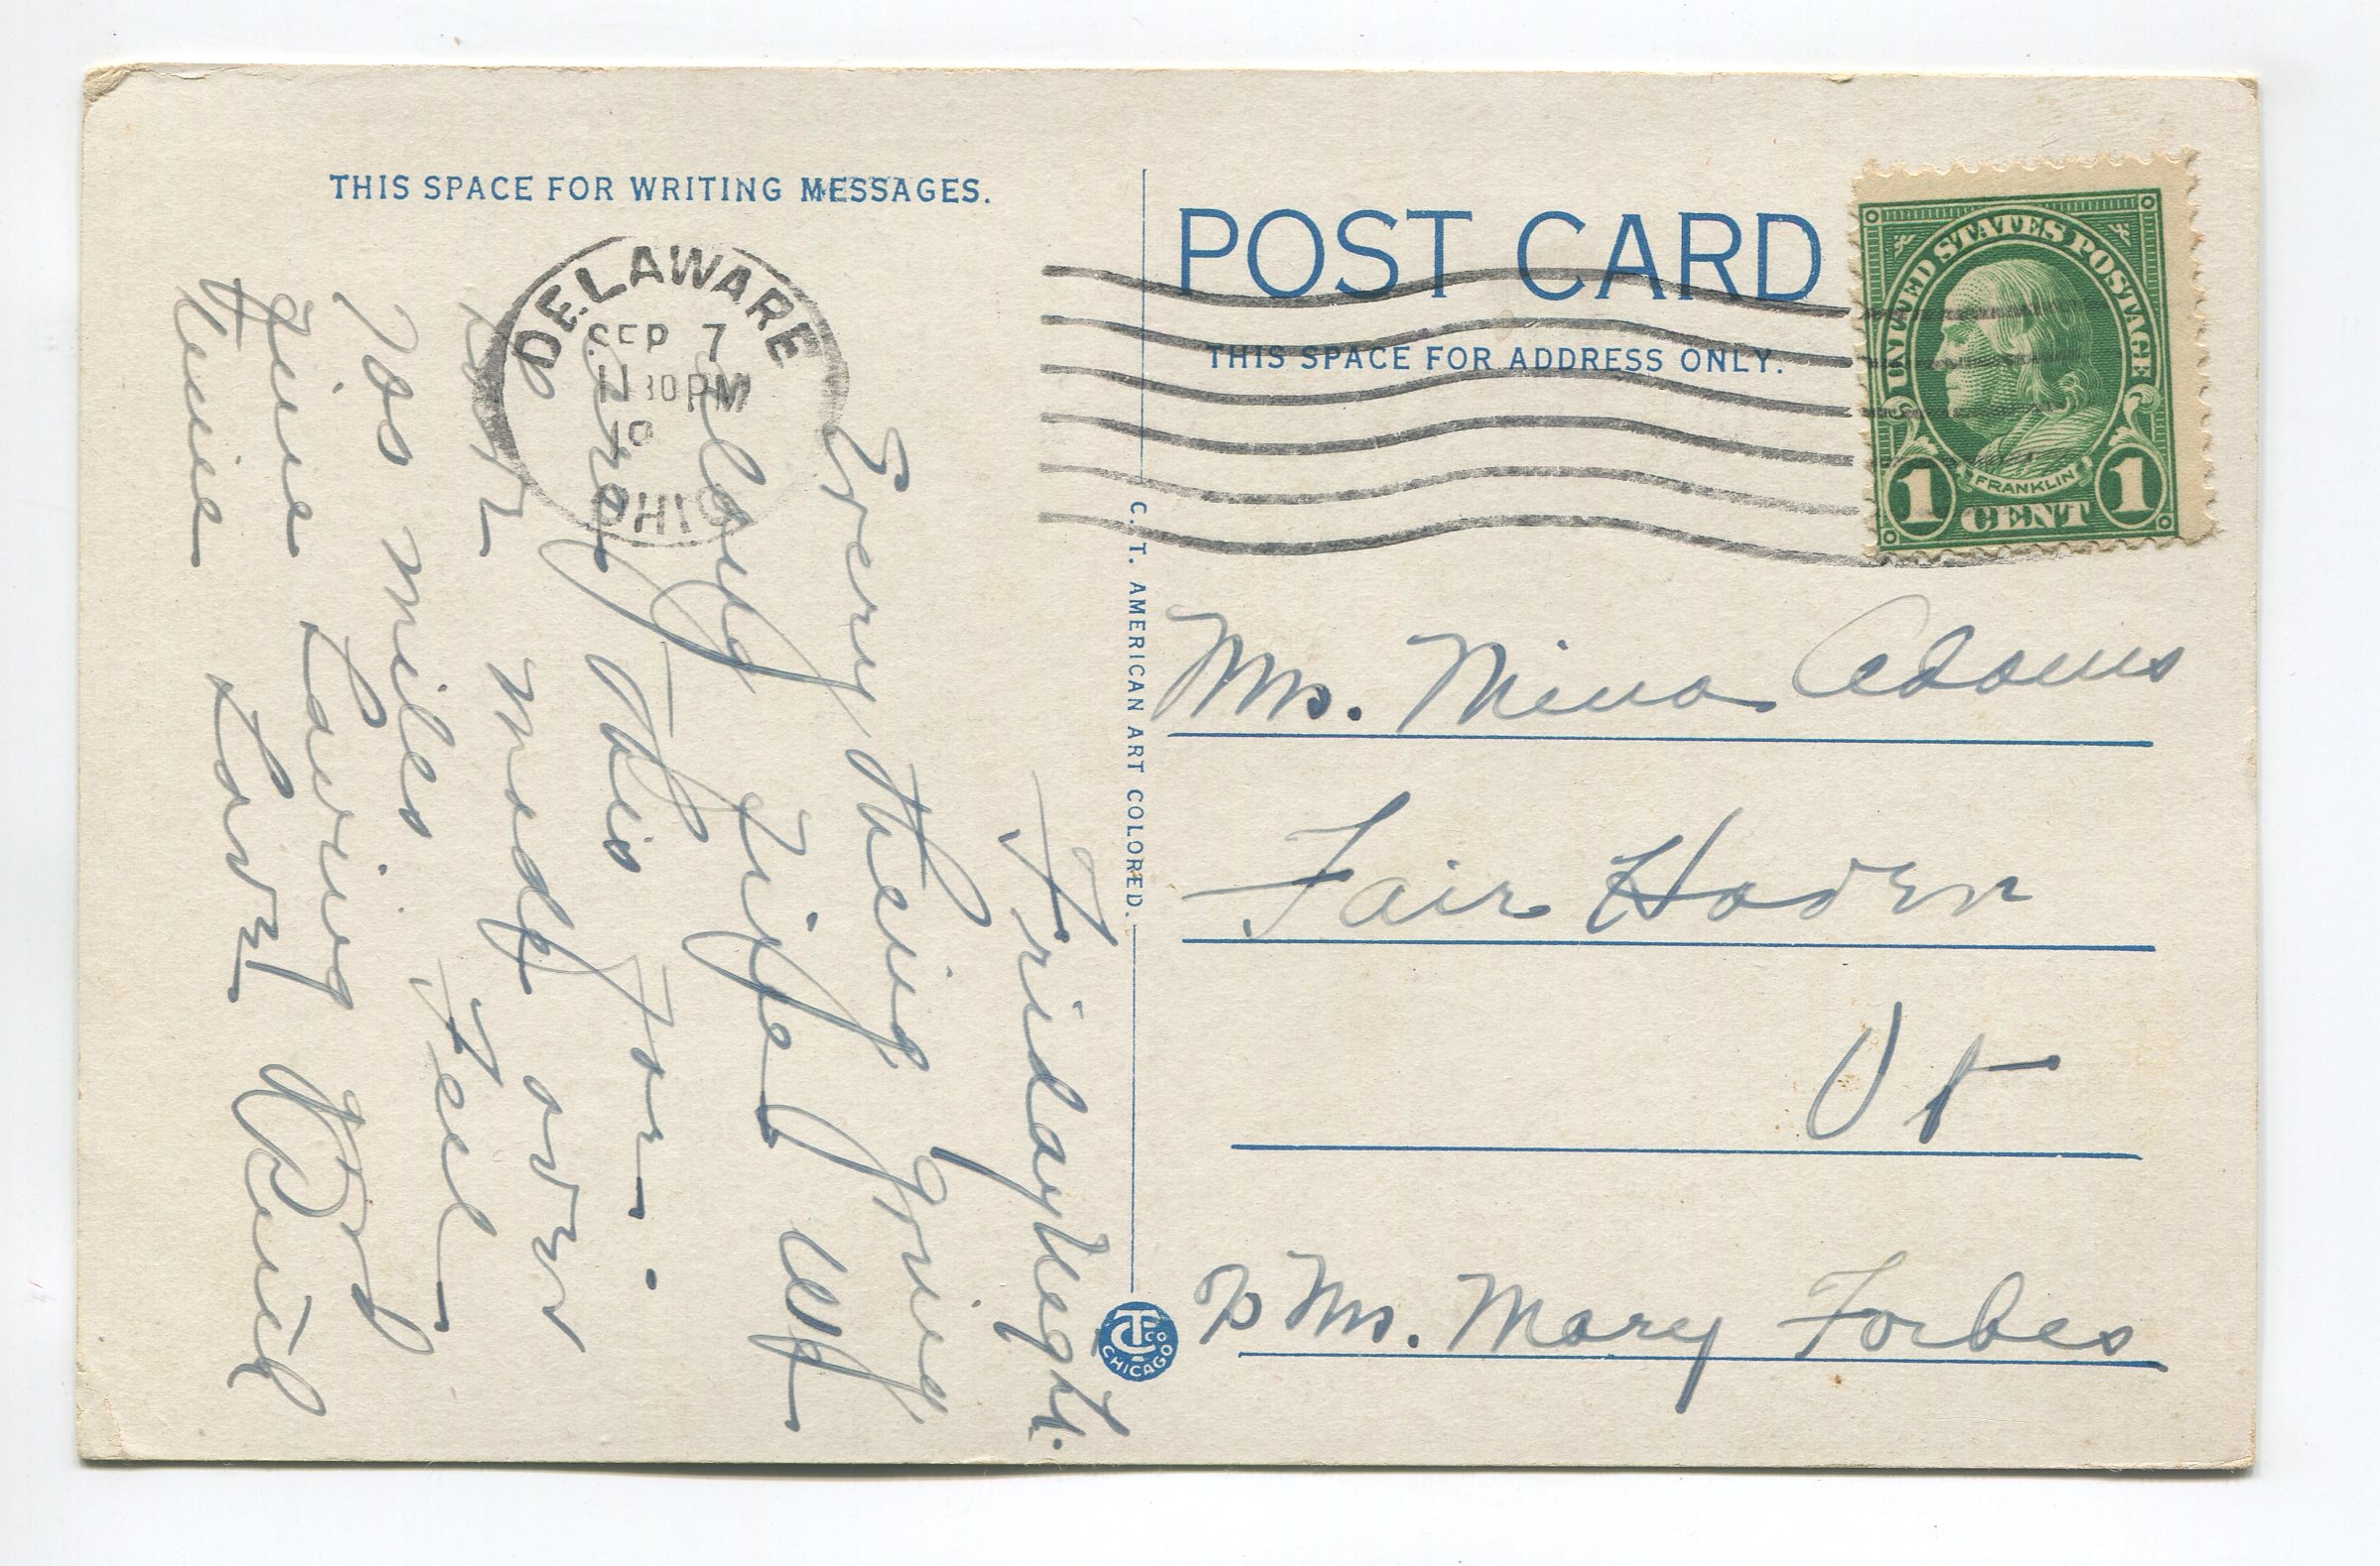 THIS SPACE FOR WRITING MESSAGES.
DELAWARE
SEP 7
11 30 PM
19
OHIO
Friday Night.
Every thing going
along fine up
and this far.
Have made over
700 miles feel
fine Having good
time Love
POST CARD
THIS SPACE FOR ADDRESS ONLY.
UNITED STATES POSTAGE
FRANKLIN
1 CENT 1
C. T. AMERICAN ART COLORED.
CT CO
CHICAGO
Mrs. Nina Adams
Fair Haven
Vt
% Mrs. Mary Forbes